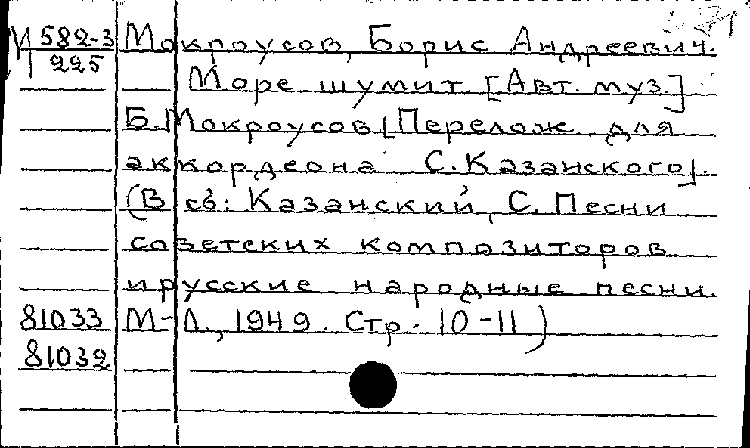 М 582-3
225
Мокроусов, Борис Андреевич.
Море шумит [Авт. муз.]
Б. Мокроусов [Перелож. для
аккордеона С. Казанского].
(В сб.: Казанский, С. Песни
советских композиторов
и русские народные песни.
М-Л., 1949. Стр. 10-11)
81033
81032